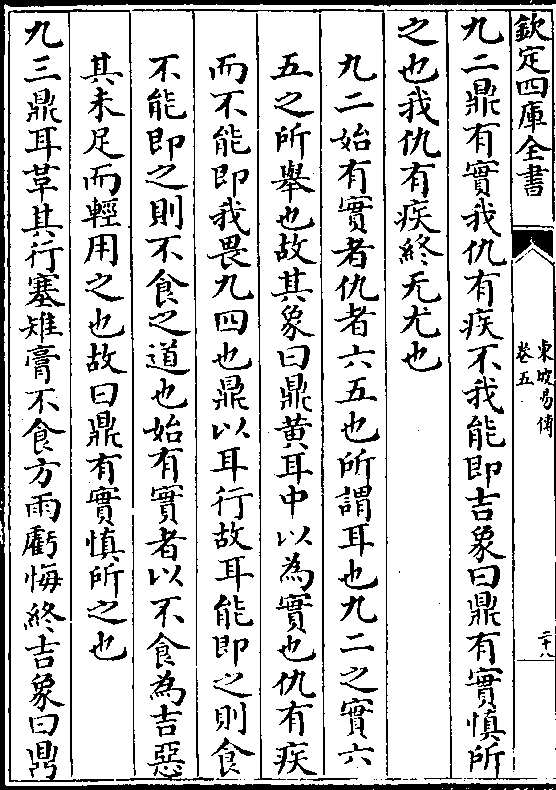 欽定四庫全書
東坡易傳
卷五
二十八
九二鼎有實我仇有疾不我能即吉象曰鼎有實慎所
之也我仇有疾終无尤也
九二始有實者仇者六五也所謂耳也九二之實六
五之所舉也故其象曰鼎黄耳中以為實也仇有疾
而不能即我畏九四也鼎以耳行故耳能即之則食
不能即之則不食之道也始有實者以不食為吉惡
其未足而輕用之也故曰鼎有實慎所之也
九三鼎耳革其行塞雉膏不食方雨虧悔終吉象曰鼎